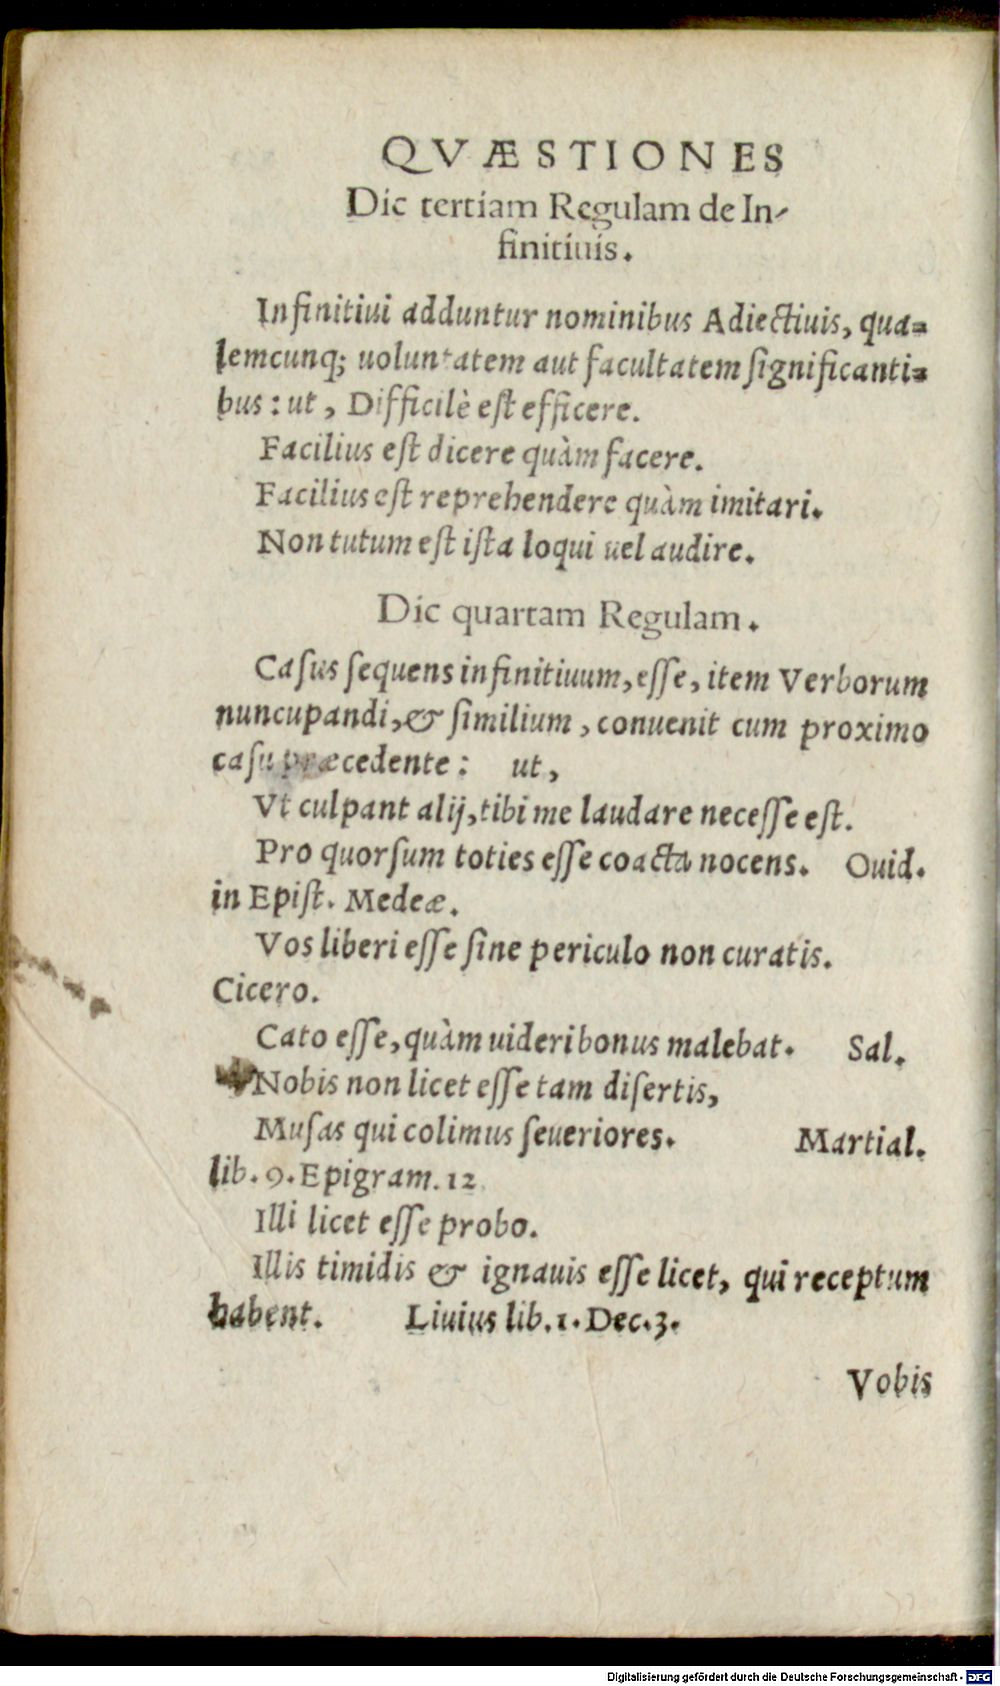 QVÆSTIONES
Dic tertiam Regulam de In-
finitiuis.
Infinitiui adduntur nominibus Adiectiuis, qua=
lemcunq; uoluntatem aut facultatem ſignificanti=
bus: ut, Difficilè eſt efficere.
Facilius eſt dicere quàm facere.
Facilius eſt reprehendere quàm imitari.
Non tutum eſt iſta loqui uel audire.
Dic quartam Regulam.
Caſus ſequens infinitiuum, eſſe, item Verborum
nuncupandi, & ſimilium, conuenit cum proximo
caſu præcedente: ut,
Vt culpant alij, tibi me laudare neceſſe eſt.
Pro quorſum toties eſſe coacta nocens. Ouid.
in Epiſt. Medeæ.
Vos liberi eſſe ſine periculo non curatis.
Cicero.
Cato eſſe, quàm uideri bonus malebat. Sal.
Nobis non licet eſſe tam diſertis,
Muſas qui colimus ſeueriores. Martial.
lib. 9. Epigram. 12
Illi licet eſſe probo.
Illis timidis & ignauis eſſe licet, qui receptum
habent. Liuius lib. 1. Dec. 3.
Vobis
Digitalisierung gefördert durch die Deutsche Forschungsgemeinschaft - DFG